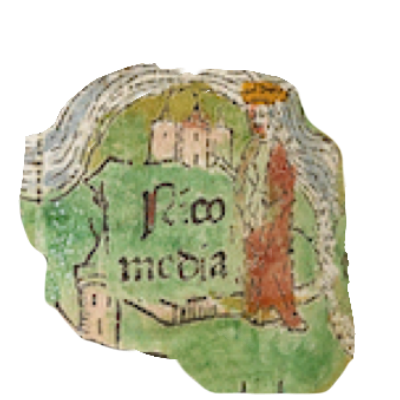 Nico
media